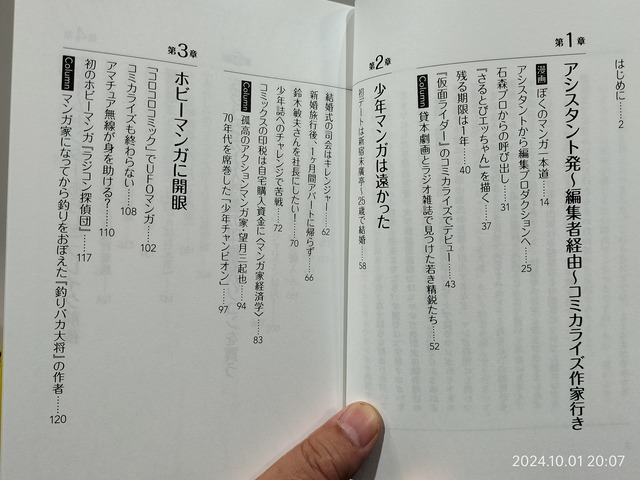 はじめに……2
第1章 アシスタント発〜編集者経由〜コミカライズ作家行き
漫画 ぼくのマンガ一本道……14
アシスタントから編集プロダクションへ……25
石森プロからの呼び出し……31
『さるとびエッちゃん』を描く……37
残る期限は1年……40
『仮面ライダー』のコミカライズでデビュー……43
Column 貸本劇画とラジオ雑誌で見つけた若き精鋭たち……52
第2章 少年マンガは遠かった
初デートは新宿末廣亭〜25歳で結婚……58
結婚式の司会はキレンジャー……62
新婚旅行後、1ヶ月間アパートに帰らず……66
鈴木敏夫さんを社長にしたい!……70
少年誌へのチャレンジで苦戦……72
コミックスの印税は自宅購入資金に〈マンガ家経済学〉……83
Column 孤高のアクションマンガ家・望月三起也……94
70年代を席巻した「少年チャンピオン」……97
第3章 ホビーマンガに開眼
「コロコロコミック」でUFOマンガ……102
コミカライズも終わらない……108
アマチュア無線が身を助ける?……110
初のホビーマンガ『ラジコン探偵団』……117
Column マンガ家になってから釣りをおぼえた『釣りバカ大将』の作者……120
2024.10.01 20:07